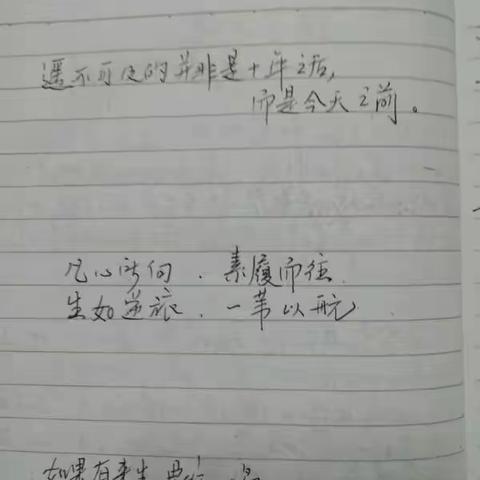 遥不可及的并非是十年之后,
而是今天之前。
凡心所向,素履而往
生如逆旅,一苇以航
如果有来生